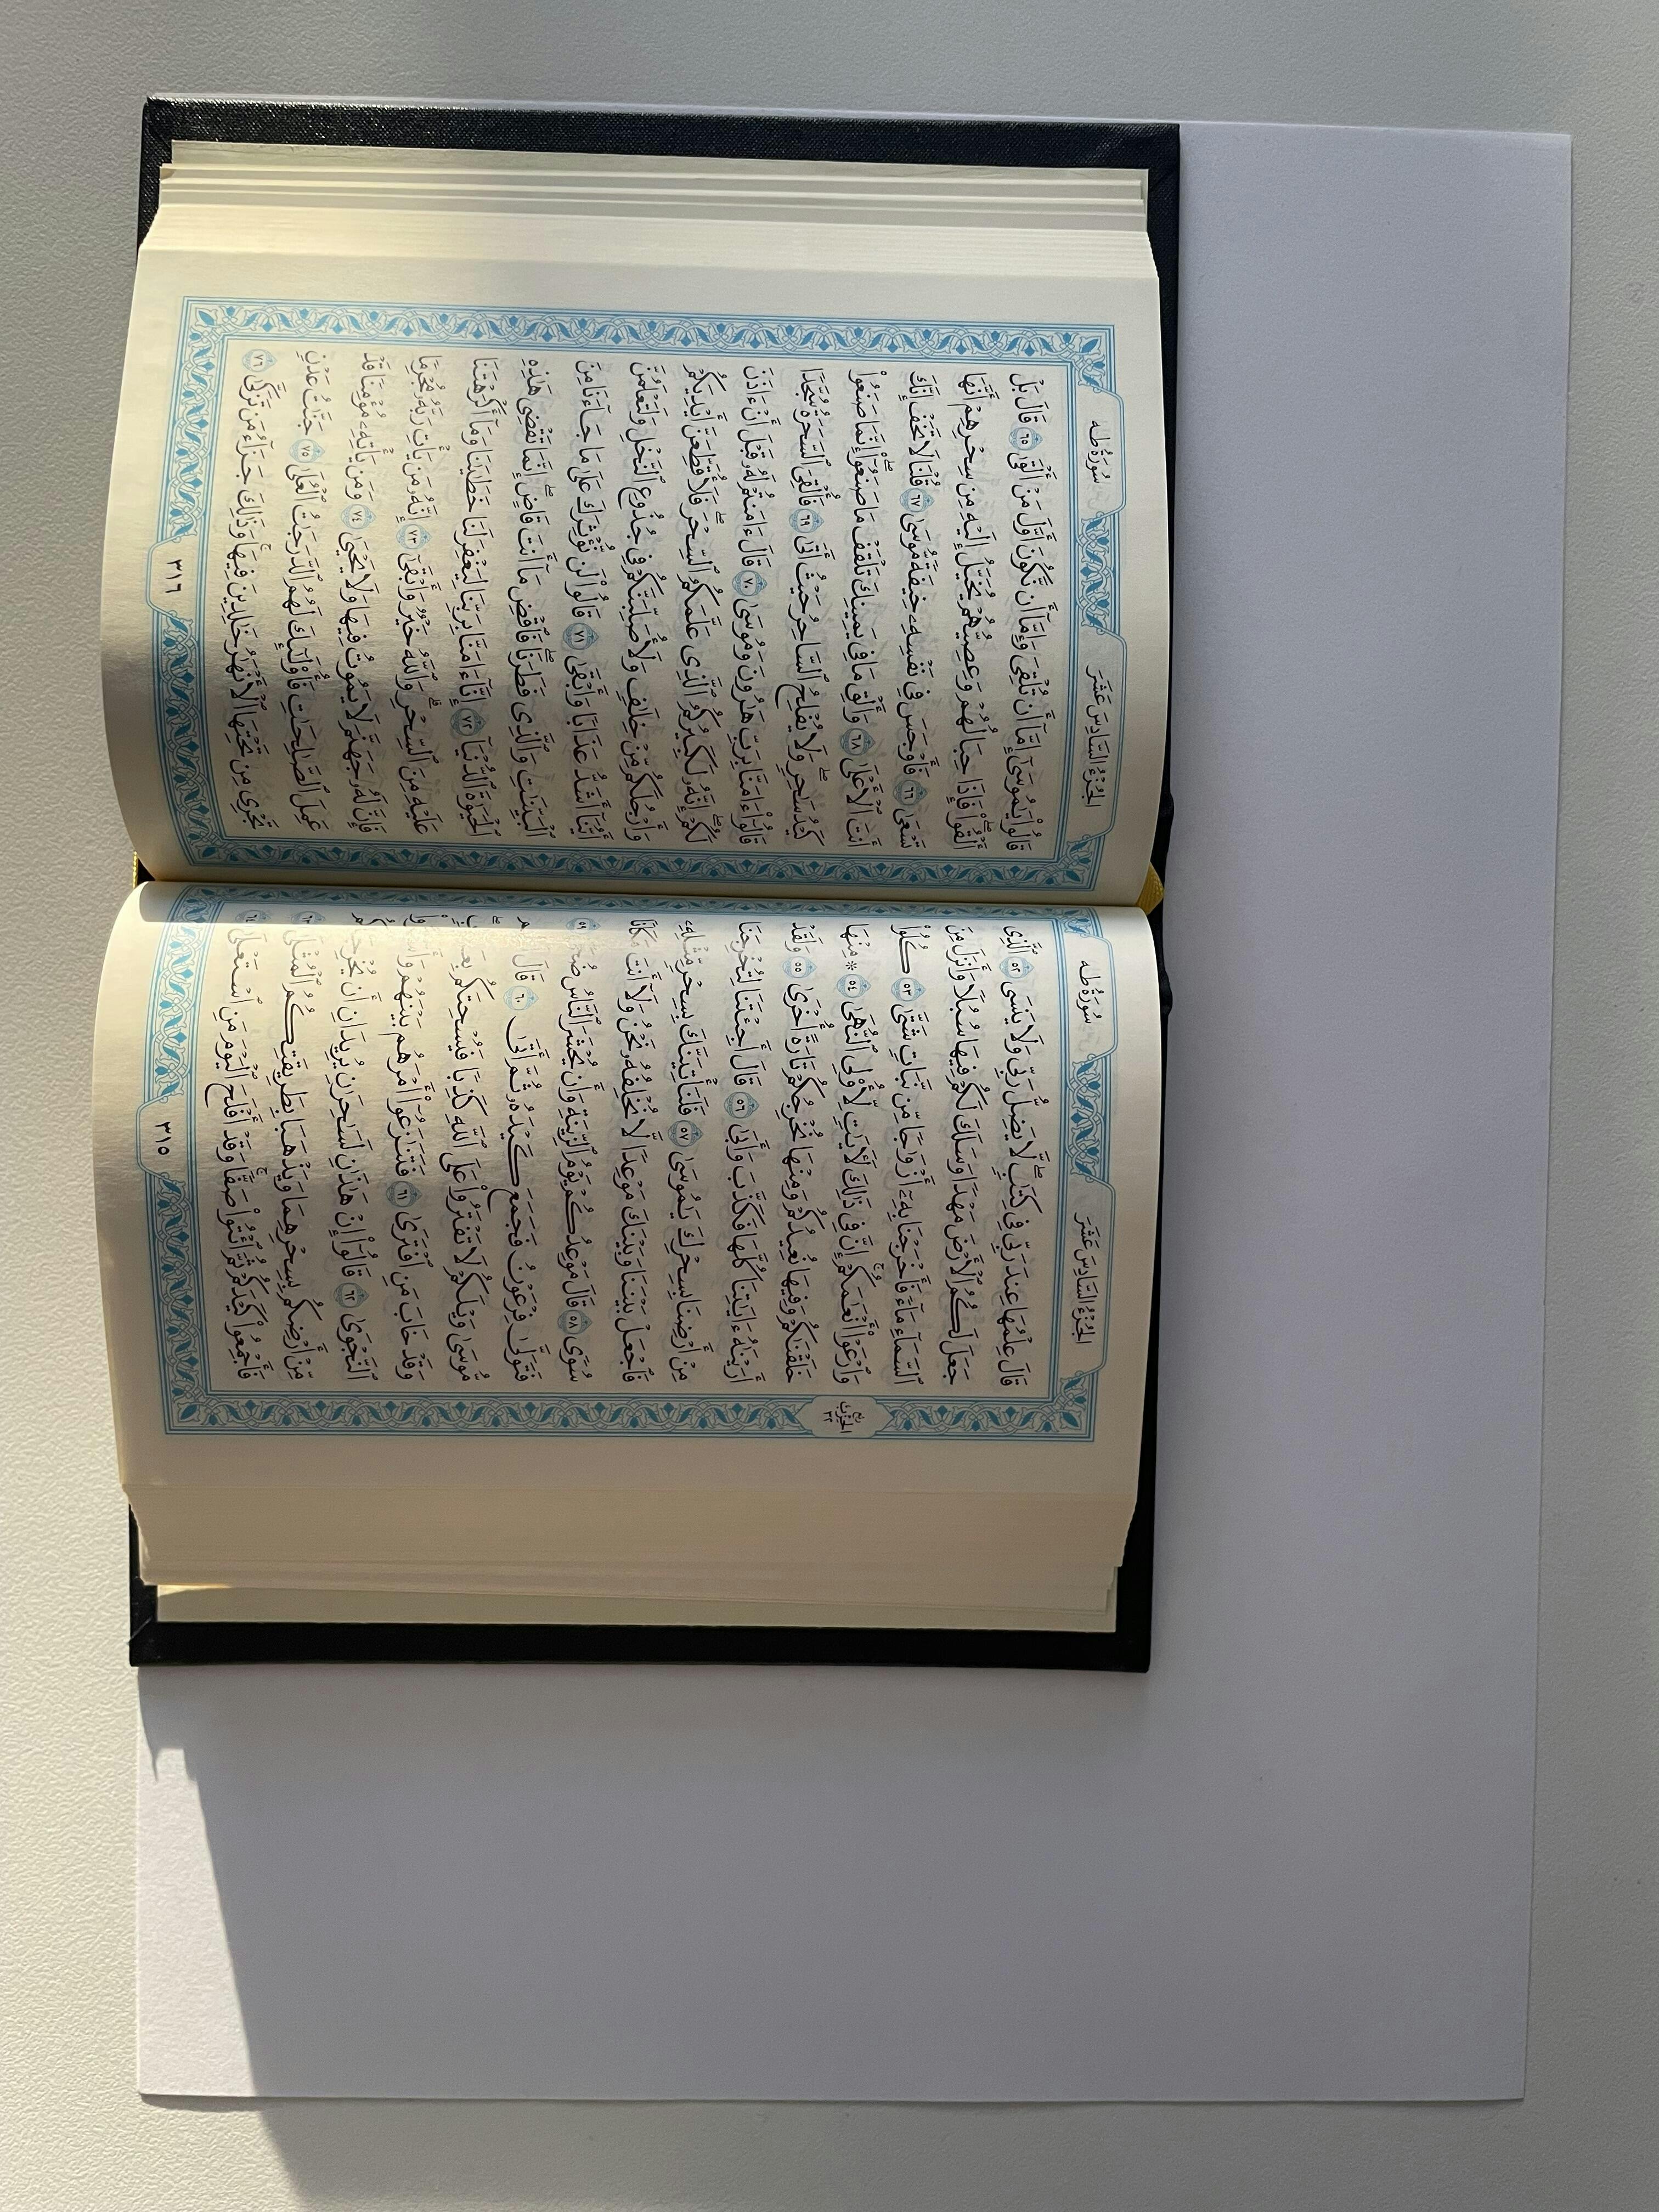 الجُزْءُ السَّادِسَ عَشَرَ سُورَةُ طه
قَالَ عِلْمُهَا عِندَ رَبِّي فِي كِتَٰبٍۖ لَّا يَضِلُّ رَبِّي وَلَا يَنسَى ٥٢ ٱلَّذِي
جَعَلَ لَكُمُ ٱلْأَرْضَ مَهْدًا وَسَلَكَ لَكُمْ فِيهَا سُبُلًا وَأَنزَلَ مِنَ
ٱلسَّمَآءِ مَآءً فَأَخْرَجْنَا بِهِۦٓ أَزْوَٰجًا مِّن نَّبَاتٍ شَتَّىٰ ٥٣ كُلُوا۟
وَٱرْعَوْا۟ أَنْعَٰمَكُمْۚ إِنَّ فِي ذَٰلِكَ لَءَايَٰتٍ لِّأُو۟لِي ٱلنُّهَىٰ ٥٤ * مِنْهَا
خَلَقْنَٰكُمْ وَفِيهَا نُعِيدُكُمْ وَمِنْهَا نُخْرِجُكُمْ تَارَةً أُخْرَىٰ ٥٥ وَلَقَدْ
أَرَيْنَٰهُ ءَايَٰتِنَا كُلَّهَا فَكَذَّبَ وَأَبَىٰ ٥٦ قَالَ أَجِئْتَنَا لِتُخْرِجَنَا
مِنْ أَرْضِنَا بِسِحْرِكَ يَٰمُوسَىٰ ٥٧ فَلَنَأْتِيَنَّكَ بِسِحْرٍ مِّثْلِهِۦ
فَٱجْعَلْ بَيْنَنَا وَبَيْنَكَ مَوْعِدًا لَّا نُخْلِفُهُۥ نَحْنُ وَلَآ أَنتَ مَكَانًا
سُوًى ٥٨ قَالَ مَوْعِدُكُمْ يَوْمُ ٱلزِّينَةِ وَأَن يُحْشَرَ ٱلنَّاسُ ٥٩
فَتَوَلَّىٰ فِرْعَوْنُ فَجَمَعَ كَيْدَهُۥ ثُمَّ أَتَىٰ ٦٠ قَالَ
مُّوسَىٰ وَيْلَكُمْ لَا تَفْتَرُوا۟ عَلَى ٱللَّهِ كَذِبًا فَيُسْحِتَكُم
وَقَدْ خَابَ مَنِ ٱفْتَرَىٰ ٦١ فَتَنَٰزَعُوٓا۟ أَمْرَهُم بَيْنَهُمْ
ٱلنَّجْوَىٰ ٦٢ قَالُوٓا۟ إِنْ هَٰذَٰنِ لَسَٰحِرَٰنِ يُرِيدَانِ أَن
مِّنْ أَرْضِكُم بِسِحْرِهِمَا وَيَذْهَبَا بِطَرِيقَتِكُمُ ٱلْمُثْلَىٰ ٦٣
فَأَجْمِعُوا۟ كَيْدَكُمْ ثُمَّ ٱئْتُوا۟ صَفًّاۚ وَقَدْ أَفْلَحَ ٱلْيَوْمَ مَنِ ٱسْتَعْلَىٰ ٦٤
رُبْعُ
الحِزْبِ
٣٢
٣١٥
الجُزْءُ السَّادِسَ عَشَرَ سُورَةُ طه
قَالُوا۟ يَٰمُوسَىٰٓ إِمَّآ أَن تُلْقِيَ وَإِمَّآ أَن نَّكُونَ أَوَّلَ مَنْ أَلْقَىٰ ٦٥ قَالَ بَلْ
أَلْقُوا۟ۖ فَإِذَا حِبَالُهُمْ وَعِصِيُّهُمْ يُخَيَّلُ إِلَيْهِ مِن سِحْرِهِمْ أَنَّهَا
تَسْعَىٰ ٦٦ فَأَوْجَسَ فِي نَفْسِهِۦ خِيفَةً مُّوسَىٰ ٦٧ قُلْنَا لَا تَخَفْ إِنَّكَ
أَنتَ ٱلْأَعْلَىٰ ٦٨ وَأَلْقِ مَا فِي يَمِينِكَ تَلْقَفْ مَا صَنَعُوٓا۟ۖ إِنَّمَا صَنَعُوا۟
كَيْدُ سَٰحِرٍۖ وَلَا يُفْلِحُ ٱلسَّاحِرُ حَيْثُ أَتَىٰ ٦٩ فَأُلْقِيَ ٱلسَّحَرَةُ سُجَّدًا
قَالُوٓا۟ ءَامَنَّا بِرَبِّ هَٰرُونَ وَمُوسَىٰ ٧٠ قَالَ ءَامَنتُمْ لَهُۥ قَبْلَ أَنْ ءَاذَنَ
لَكُمْۖ إِنَّهُۥ لَكَبِيرُكُمُ ٱلَّذِي عَلَّمَكُمُ ٱلسِّحْرَۖ فَلَأُقَطِّعَنَّ أَيْدِيَكُمْ
وَأَرْجُلَكُم مِّنْ خِلَٰفٍ وَلَأُصَلِّبَنَّكُمْ فِي جُذُوعِ ٱلنَّخْلِ وَلَتَعْلَمُنَّ
أَيُّنَآ أَشَدُّ عَذَابًا وَأَبْقَىٰ ٧١ قَالُوا۟ لَن نُّؤْثِرَكَ عَلَىٰ مَا جَآءَنَا مِنَ
ٱلْبَيِّنَٰتِ وَٱلَّذِي فَطَرَنَاۖ فَٱقْضِ مَآ أَنتَ قَاضٍۖ إِنَّمَا تَقْضِي هَٰذِهِ
ٱلْحَيَوٰةَ ٱلدُّنْيَآ ٧٢ إِنَّآ ءَامَنَّا بِرَبِّنَا لِيَغْفِرَ لَنَا خَطَٰيَٰنَا وَمَآ أَكْرَهْتَنَا
عَلَيْهِ مِنَ ٱلسِّحْرِۗ وَٱللَّهُ خَيْرٌ وَأَبْقَىٰٓ ٧٣ إِنَّهُۥ مَن يَأْتِ رَبَّهُۥ مُجْرِمًا
فَإِنَّ لَهُۥ جَهَنَّمَ لَا يَمُوتُ فِيهَا وَلَا يَحْيَىٰ ٧٤ وَمَن يَأْتِهِۦ مُؤْمِنًا قَدْ
عَمِلَ ٱلصَّٰلِحَٰتِ فَأُو۟لَٰٓئِكَ لَهُمُ ٱلدَّرَجَٰتُ ٱلْعُلَىٰ ٧٥ جَنَّٰتُ عَدْنٍ
تَجْرِي مِن تَحْتِهَا ٱلْأَنْهَٰرُ خَٰلِدِينَ فِيهَاۚ وَذَٰلِكَ جَزَآءُ مَن تَزَكَّىٰ ٧٦
٣١٦